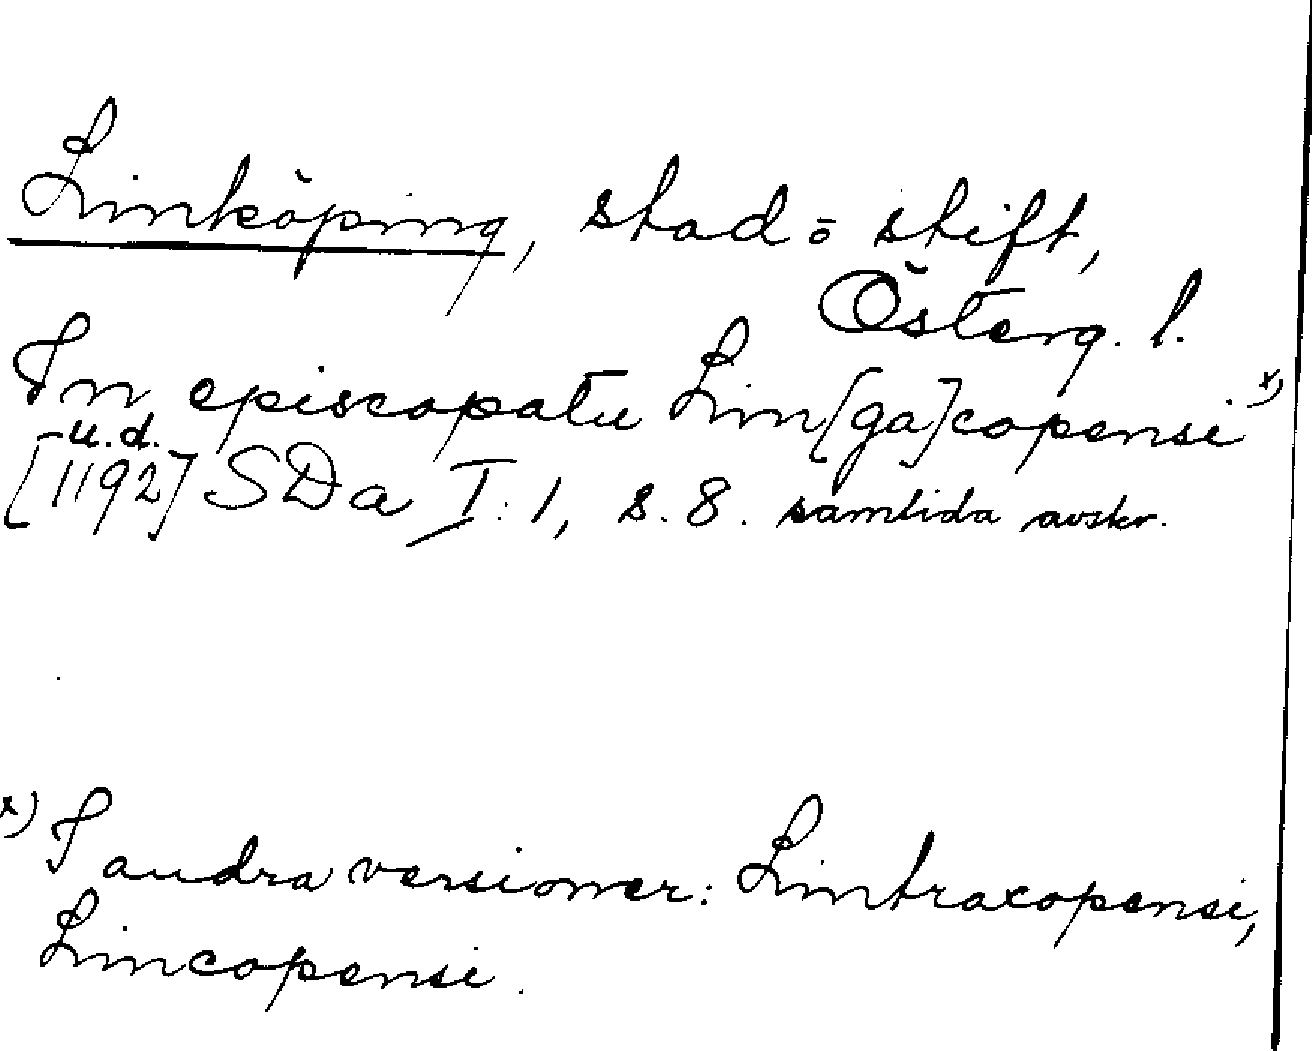 Linköping, stad o stift,
Österg. l.
In episcopatu Lin[ga]copensi x)
u.d.
[1192] SDa I:1, s. 8. samtida avskr.
x) I andra versioner: Lintracopensi,
Lincopensi.